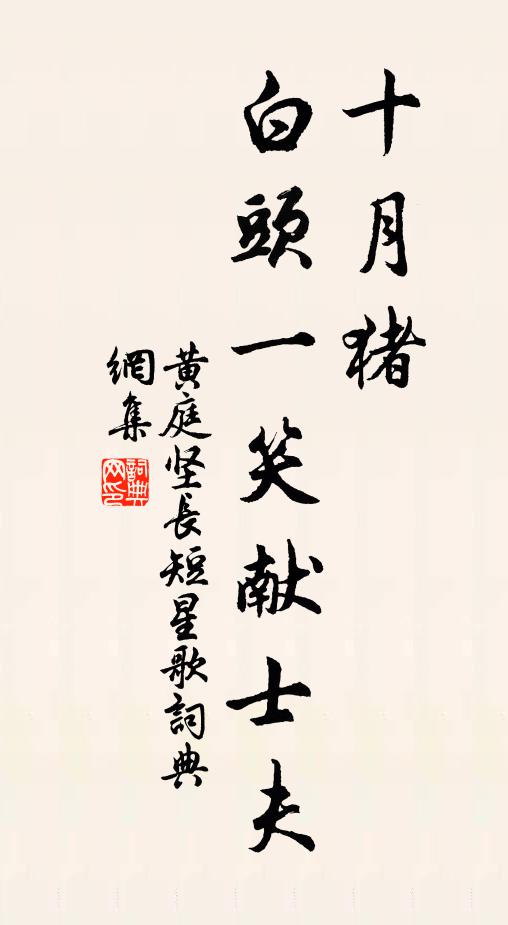 十月猪
白頭一笑献士夫
黄庭坚長短星歌詞典
網集
詞典
网印